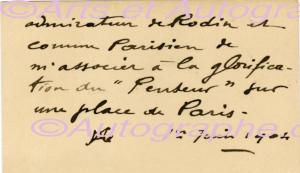 admirateur de Rodin et
comme Parisien de
m'associer à la glorifica-
tion du "Penseur" sur
une place de Paris.
Juin 1904
©Arts et Autographes
©Autographe